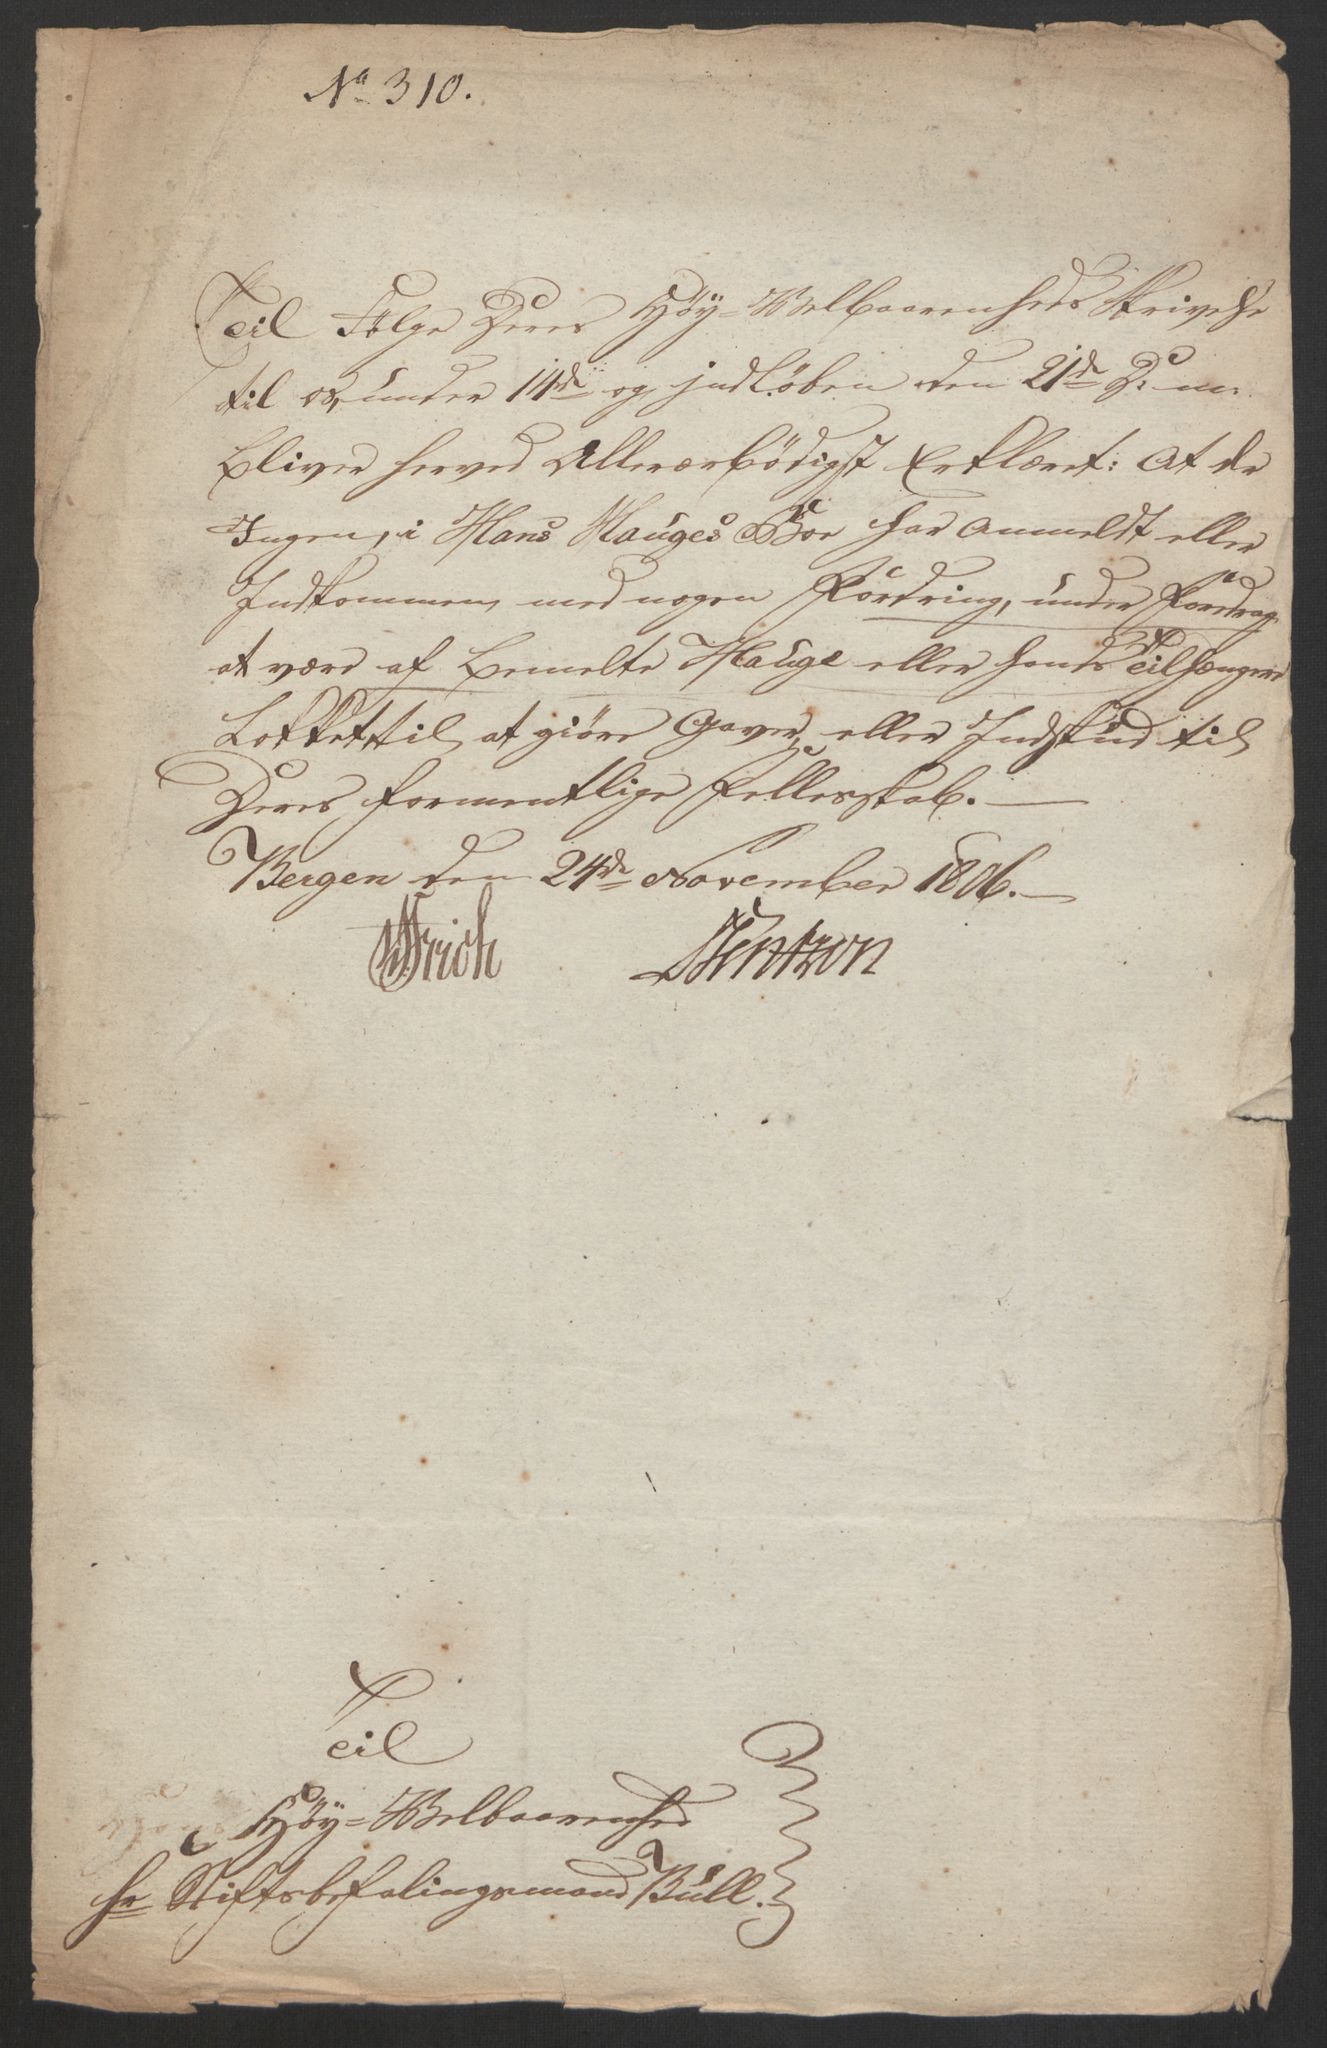 No 310.
Til Følge Deres Høy-Welbaarenheds Skrivelse
til os, under 14de og indløben den 21de D: m:
bliver herved Allerærbödigst Erklæret: At der
Ingen, i Hans Hauges Boe har anmeldt eller
Indkommen med nogen Fordring, under Foredrag
at være af bemelte Hauge eller hands Tilhængere
Lokket til at giöre Gaver, eller Indskud til
Deres formentlige Fellesskab. —
Bergen den 24de November 1806. —
Frich Hentzon
Til
Høy-Welbaarenhed
hr Stiftsbefalingsmand Bull.